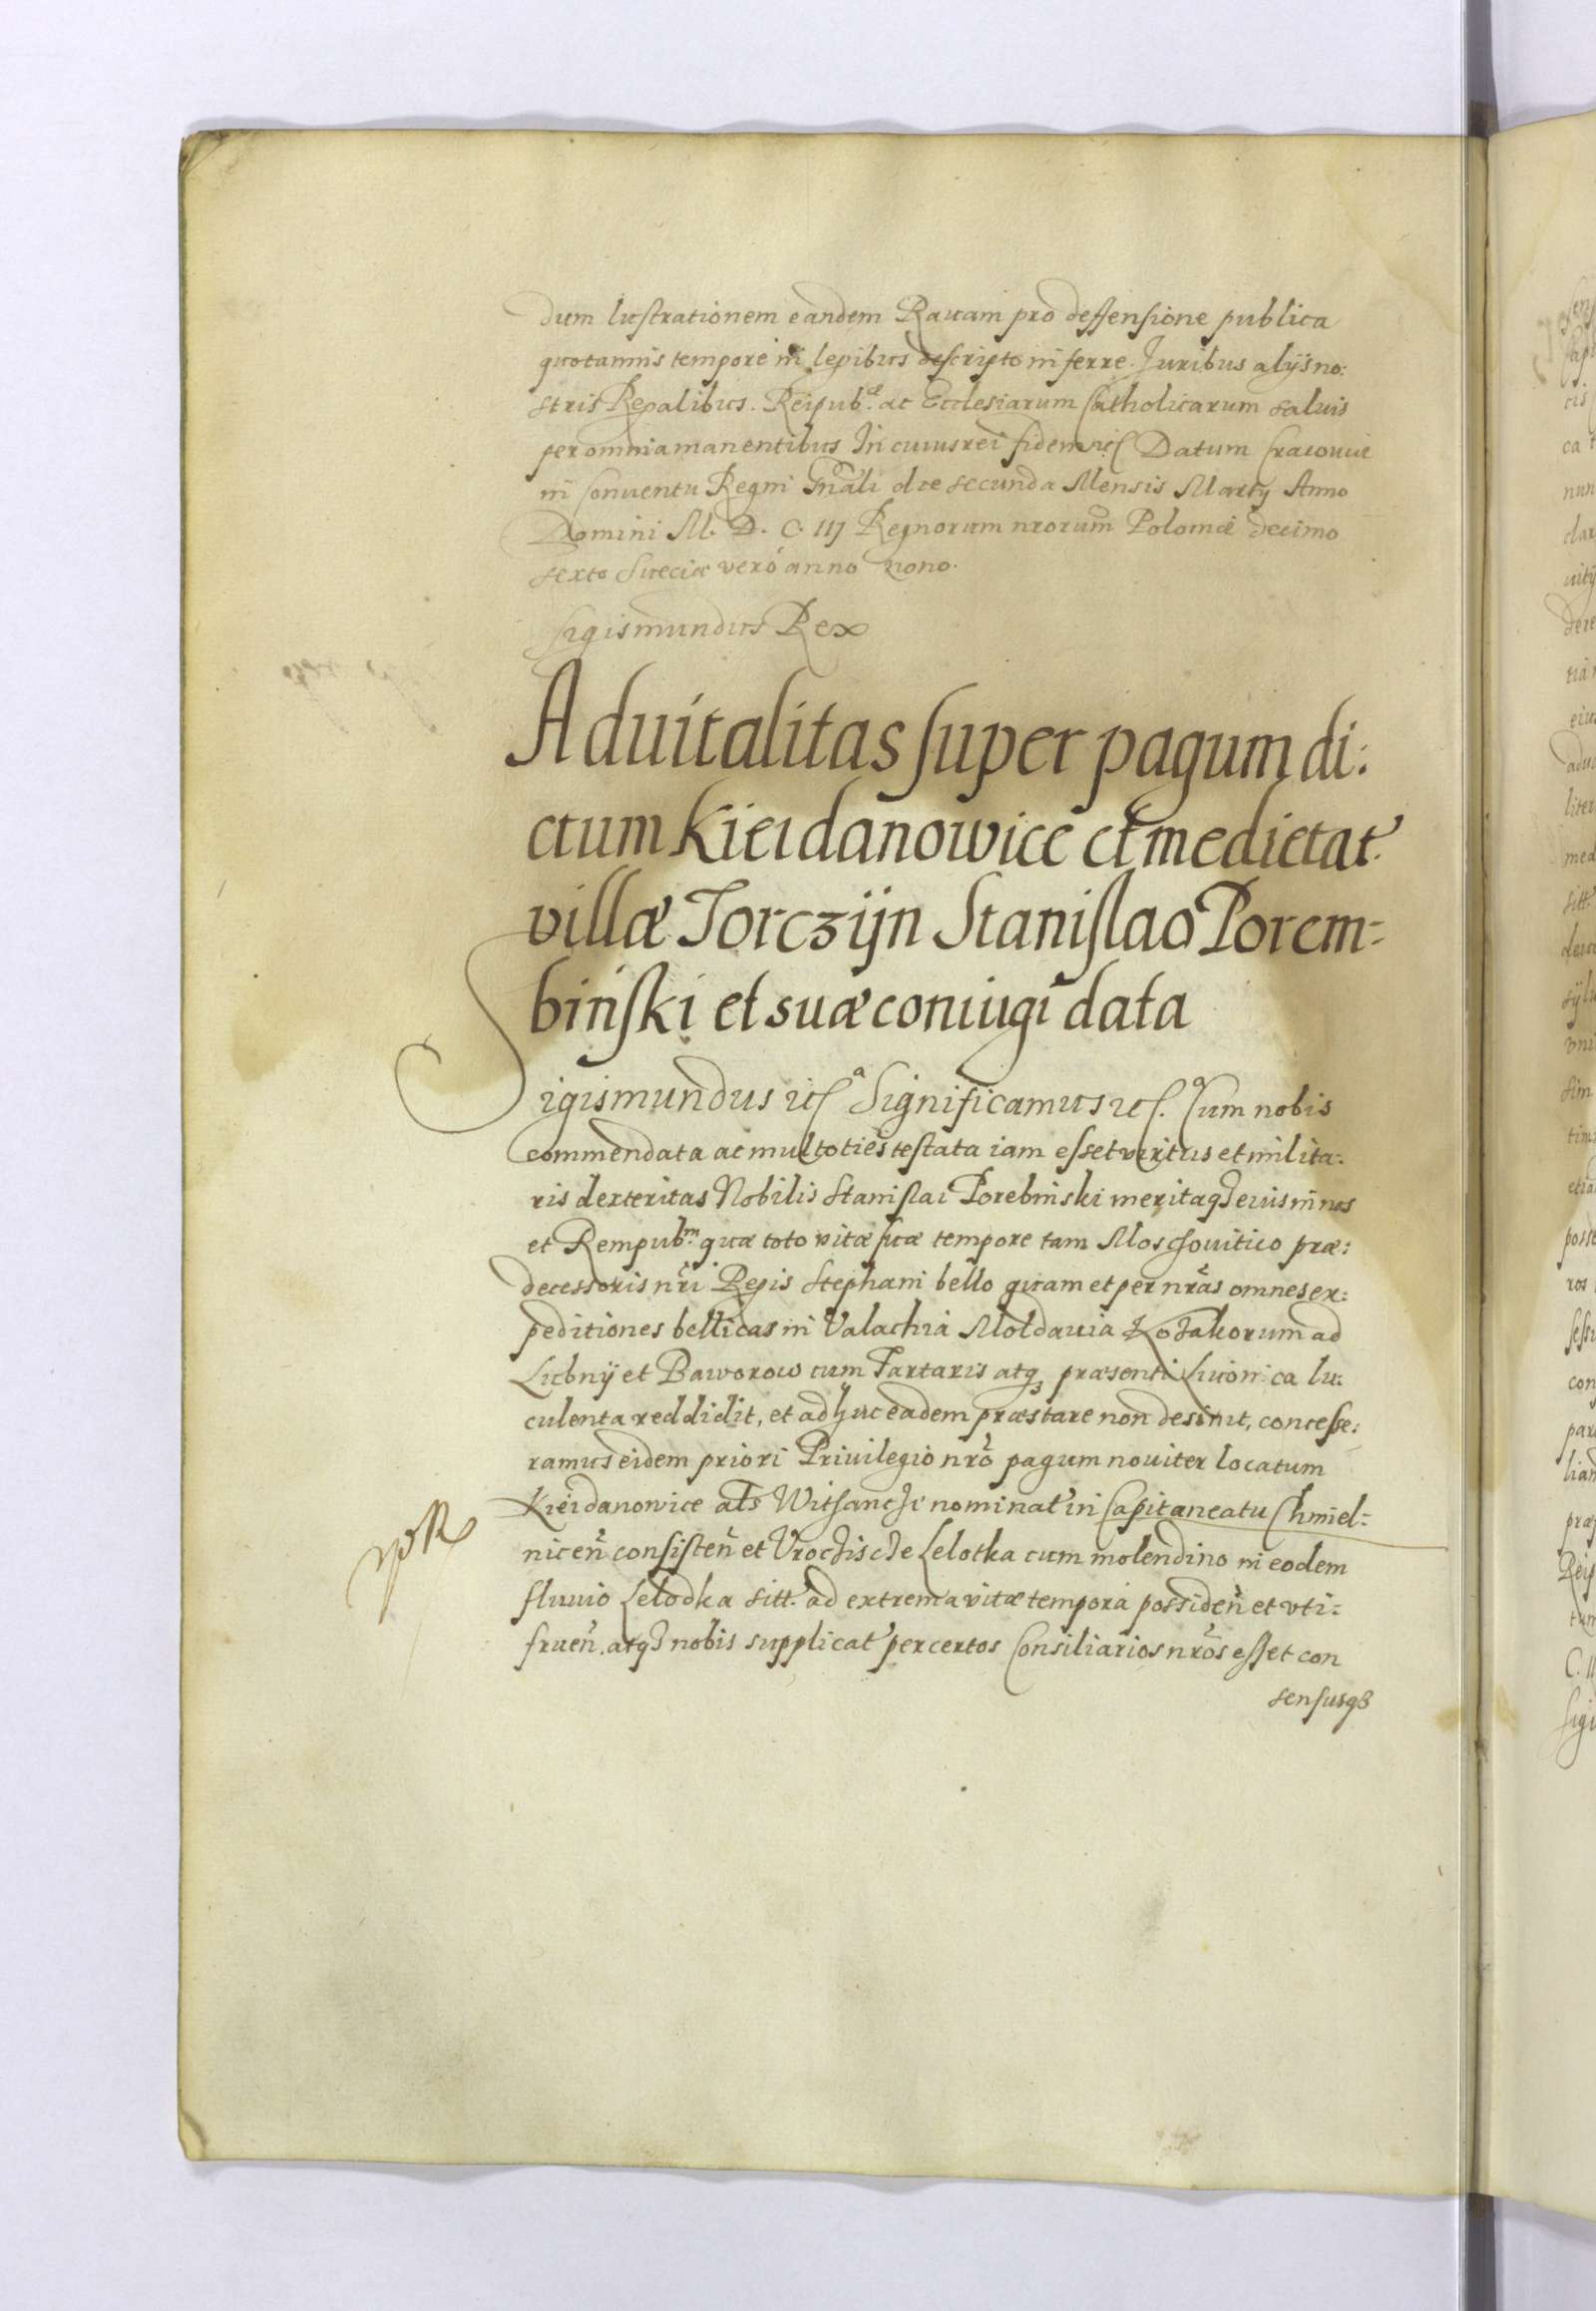 dum lustrationem eandem Rauam pro deffensione publica
quotannis tempore in legibus descripto inferre. Juribus alijs no:
stris Regalibus. Reipub.æ ac Ecclesiarum Catholicarum saluis
per omnia manentibus In cuius rei fidem etc Datum Cracouiæ
in Conuentu Regni Gnãli die secunda Mensis Martij Anno
Domini M. D. C. IIJ Regnorum nrorum Poloniæ decimo
sexto Sueciæ veró anno nono.
Sigismundus Rex
Aduitalitas super pagum di:
ctum Kieidanowice et medietat.
villæ Torczijn Stanislao Porem=
biński et suæ coniugi data
Sigismundus etc.a Significamus etc. Cum nobis
commendata ac multoties testata iam esset virtus et milita:
ris dexteritas Nobilis Stanislai Porebinski meritaq3 eius in nos
et Rempub.m quæ toto vitæ suæ tempore tam Moschouitico præ:
decessoris nr̃i Regis Stephani bello quam et per nr̃as omnes ex:
peditiones bellicas in Valachia Moldauia Kozakorum ad
Lubnÿ et Baworow cum Tartaris atq3 præsenti Liuonica lu:
culenta reddidit, et adhuc eadem præstare non desinit, concesse:
ramus eidem priori Priuilegio nrõ pagum nouiter locatum
Kieidanowice als Withanche nominat in Capitaneatu Chmiel=
nicen̄ consisten̄ et Vrochische Lelotka cum molendino in eodem
fluuio Lelodka sitt. ad extrema vitæ tempora possiden̄ et vti=
fruen̄. atq3 nobis supplicat per certos Consiliarios nrõs esset con
sensusq3